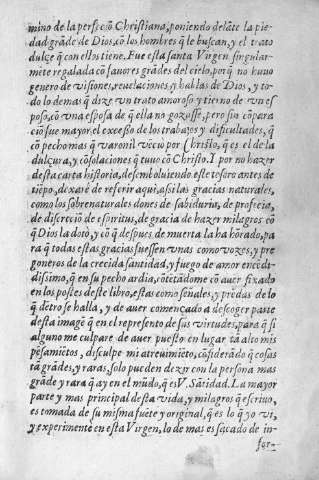 mino de la perfeciõ Christiana, poniendo delãte la pie-
dad grãde de Dios, cõ los hombres q̃ le buscan, y el trato
dulze q̃ con ellos tiene. Fue esta santa Virgen singular-
mete regalada cõ fauores grãdes del cielo, porq̃ no huuo
genero de visiones, reuelaciones, y hablas de Dios, y to-
do lo demas q̃ dize vn trato amoroso y tierno de vn es
poso, cõ vna esposa de q̃ ella no gozasse, pero sin cõpara
ciõ fue mayor el excesso de los trabajos y dificultades, q̃
cõ pecho mas q̃ varonil vecio por Christo, q̃ es el de la
dulzura, y cõsolaciones q̃ tuuo cõ Christo. Y por no hazer
desta carta historia, desemboluiendo este tesoro antes de
tiẽpo, dexarè de referir aqui, assi las gracias naturales,
como los sobrenaturales dones de sabiduria, de profecia,
de discreciõ de espiritus, de gracia de hazer milagros cõ
q̃ Dios la dotò, y cõ q̃ despues de muerta la ha hõrado, pa
ra q̃ todas estas gracias fuessen vnas como vozes, y pre
goneros de la crecida santidad, y fuego de amor encedi-
dissimo, q̃ en su pecho ardia, cõtetãdome cõ auer fixado
en los postes deste libro, estas como señales, y predas de lo
q̃ dẽtro se halla, y de auer començado a descoger parte
desta imagẽ q̃ en el represento de sus virtudes, para q̃ si
alguno me culpare de auer puesto en lugar tã alto mis
pẽsamiẽtos, disculpe mi atreuimiẽto, cõsiderãdo q̃ cosas
tã grãdes, y raras, solo pueden dezir con la persona mas
grãde y rara q̃ ay en el mũdo, q̃ es V. Sãtidad. La mayor
parte y mas principal desta vida, y milagros q̃ escriuo,
es tomada de su misma fuẽte y original, q̃ es lo q̃ yo vi,
y experimentè en esta Virgen, lo de mas es sacado de in-
for-